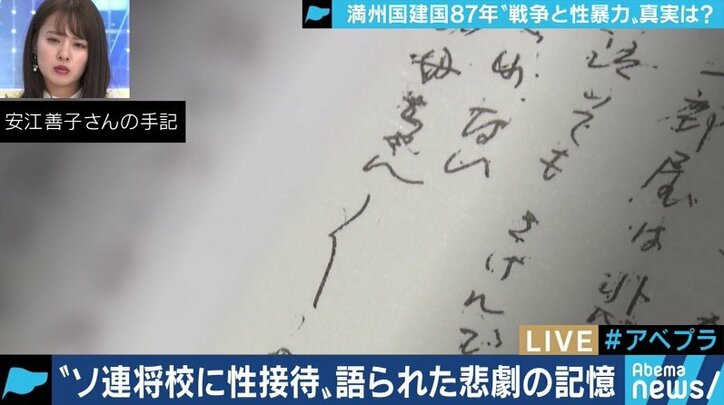 満州国建国87年〝戦争と性暴力〟真実は？
安江善子さんの手記
部屋は
いても さけんで
めない
母ちゃん
LIVE #アベプラ
〝ソ連将校に性接待〟語られた悲劇の記憶
Abema
news/